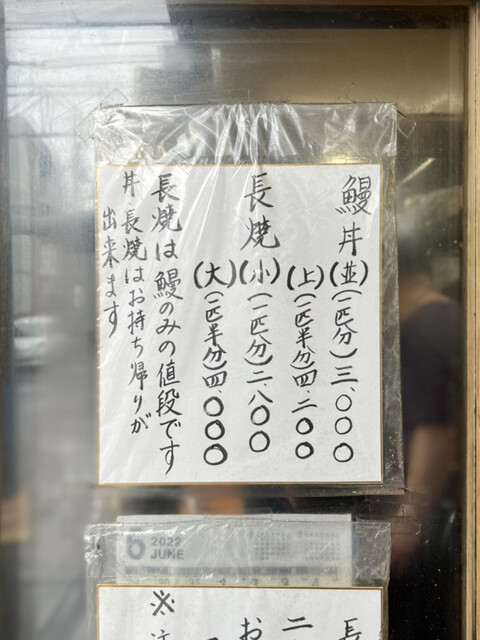 鰻丼(並)(一匹分)三、〇〇〇
(上)(一匹半分)四、二〇〇
長焼(小)(一匹分)二、八〇〇
(大)(一匹半分)四、〇〇〇
長焼は鰻のみの値段です
丼、長焼はお持ち帰りが
出来ます
6 2022
JUNE
長
二
お
※注